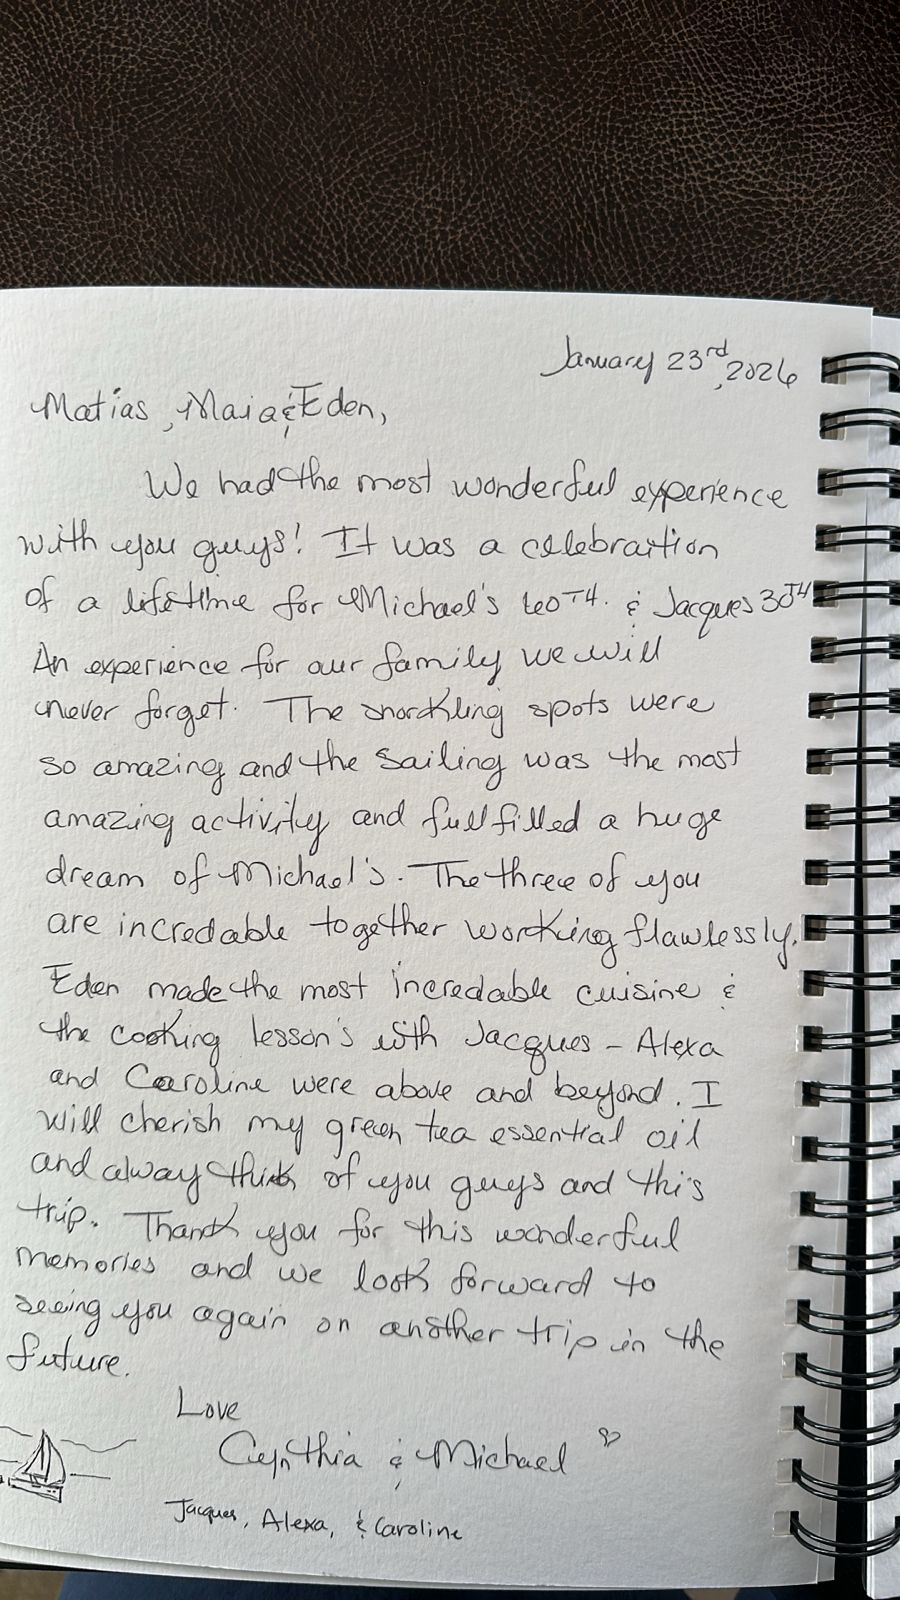 January 23rd, 2026
Matias, Maia & Eden,
We had the most wonderful experience
with you guys! It was a celebraition
of a lifetime for Michael's 60TH. & Jacques 30TH
An experience for our family we will
never forget. The snorkling spots were
so amazing and the sailing was the most
amazing activity and fullfilled a huge
dream of Michael's. The three of you
are incredable together working flawlessly.
Eden made the most incredable cuisine &
the cooking lesson's with Jacques - Alexa
and Caroline were above and beyond. I
will cherish my green tea essential oil
and alway think of you guys and this
trip. Thank you for this wonderful
memories and we look forward to
seeing you again on another trip in the
future.
Love
Cynthia & Michael
Jacques, Alexa, & Caroline